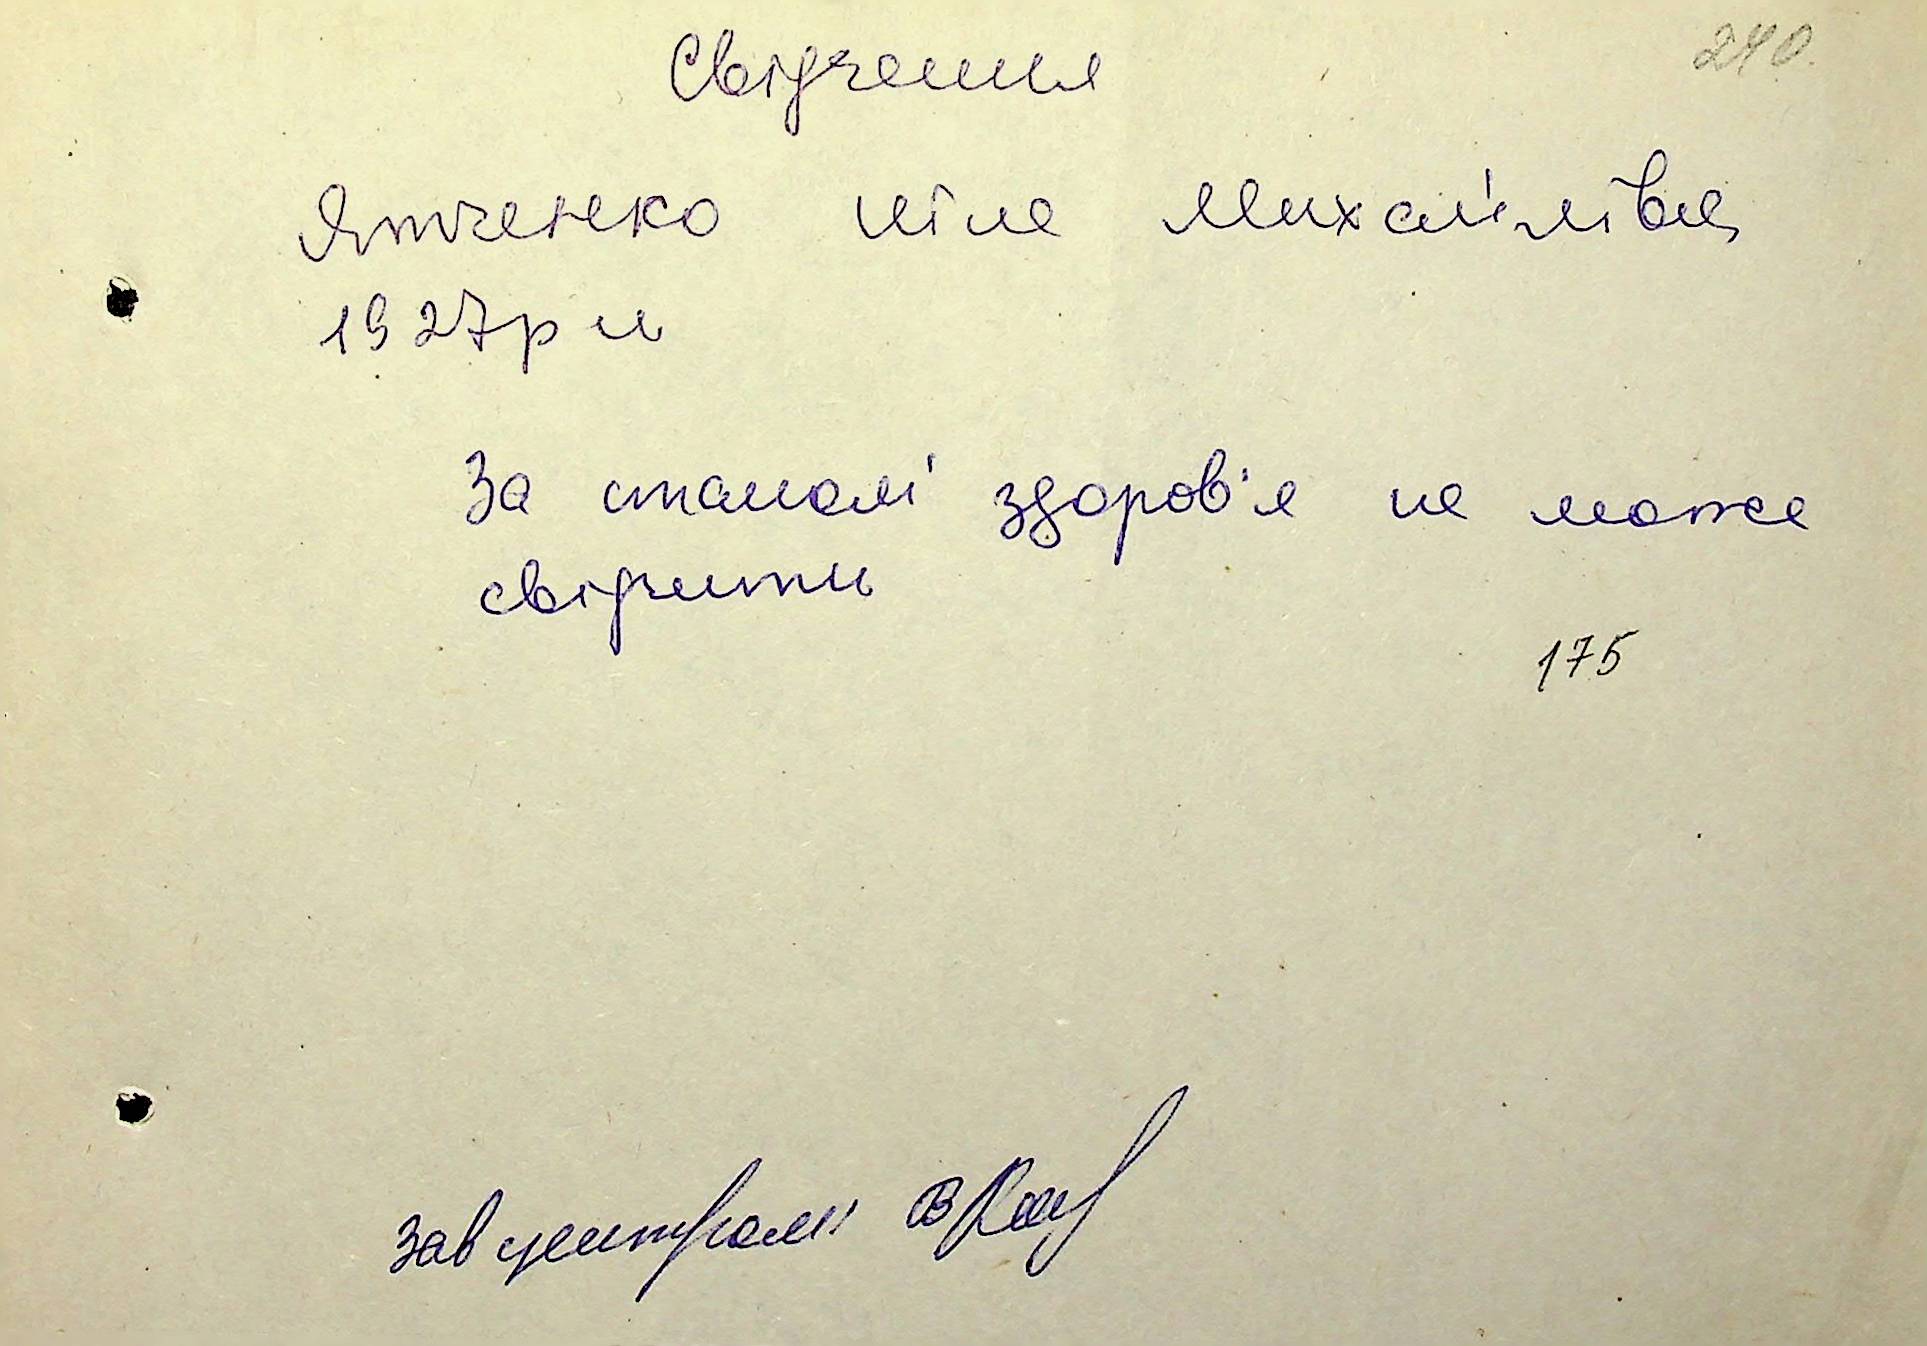 240.
Свідчення
Ятченко Ніна Михайлівна
1927 р н
За станом здоров'я не може
свідчити
175
Зав центром